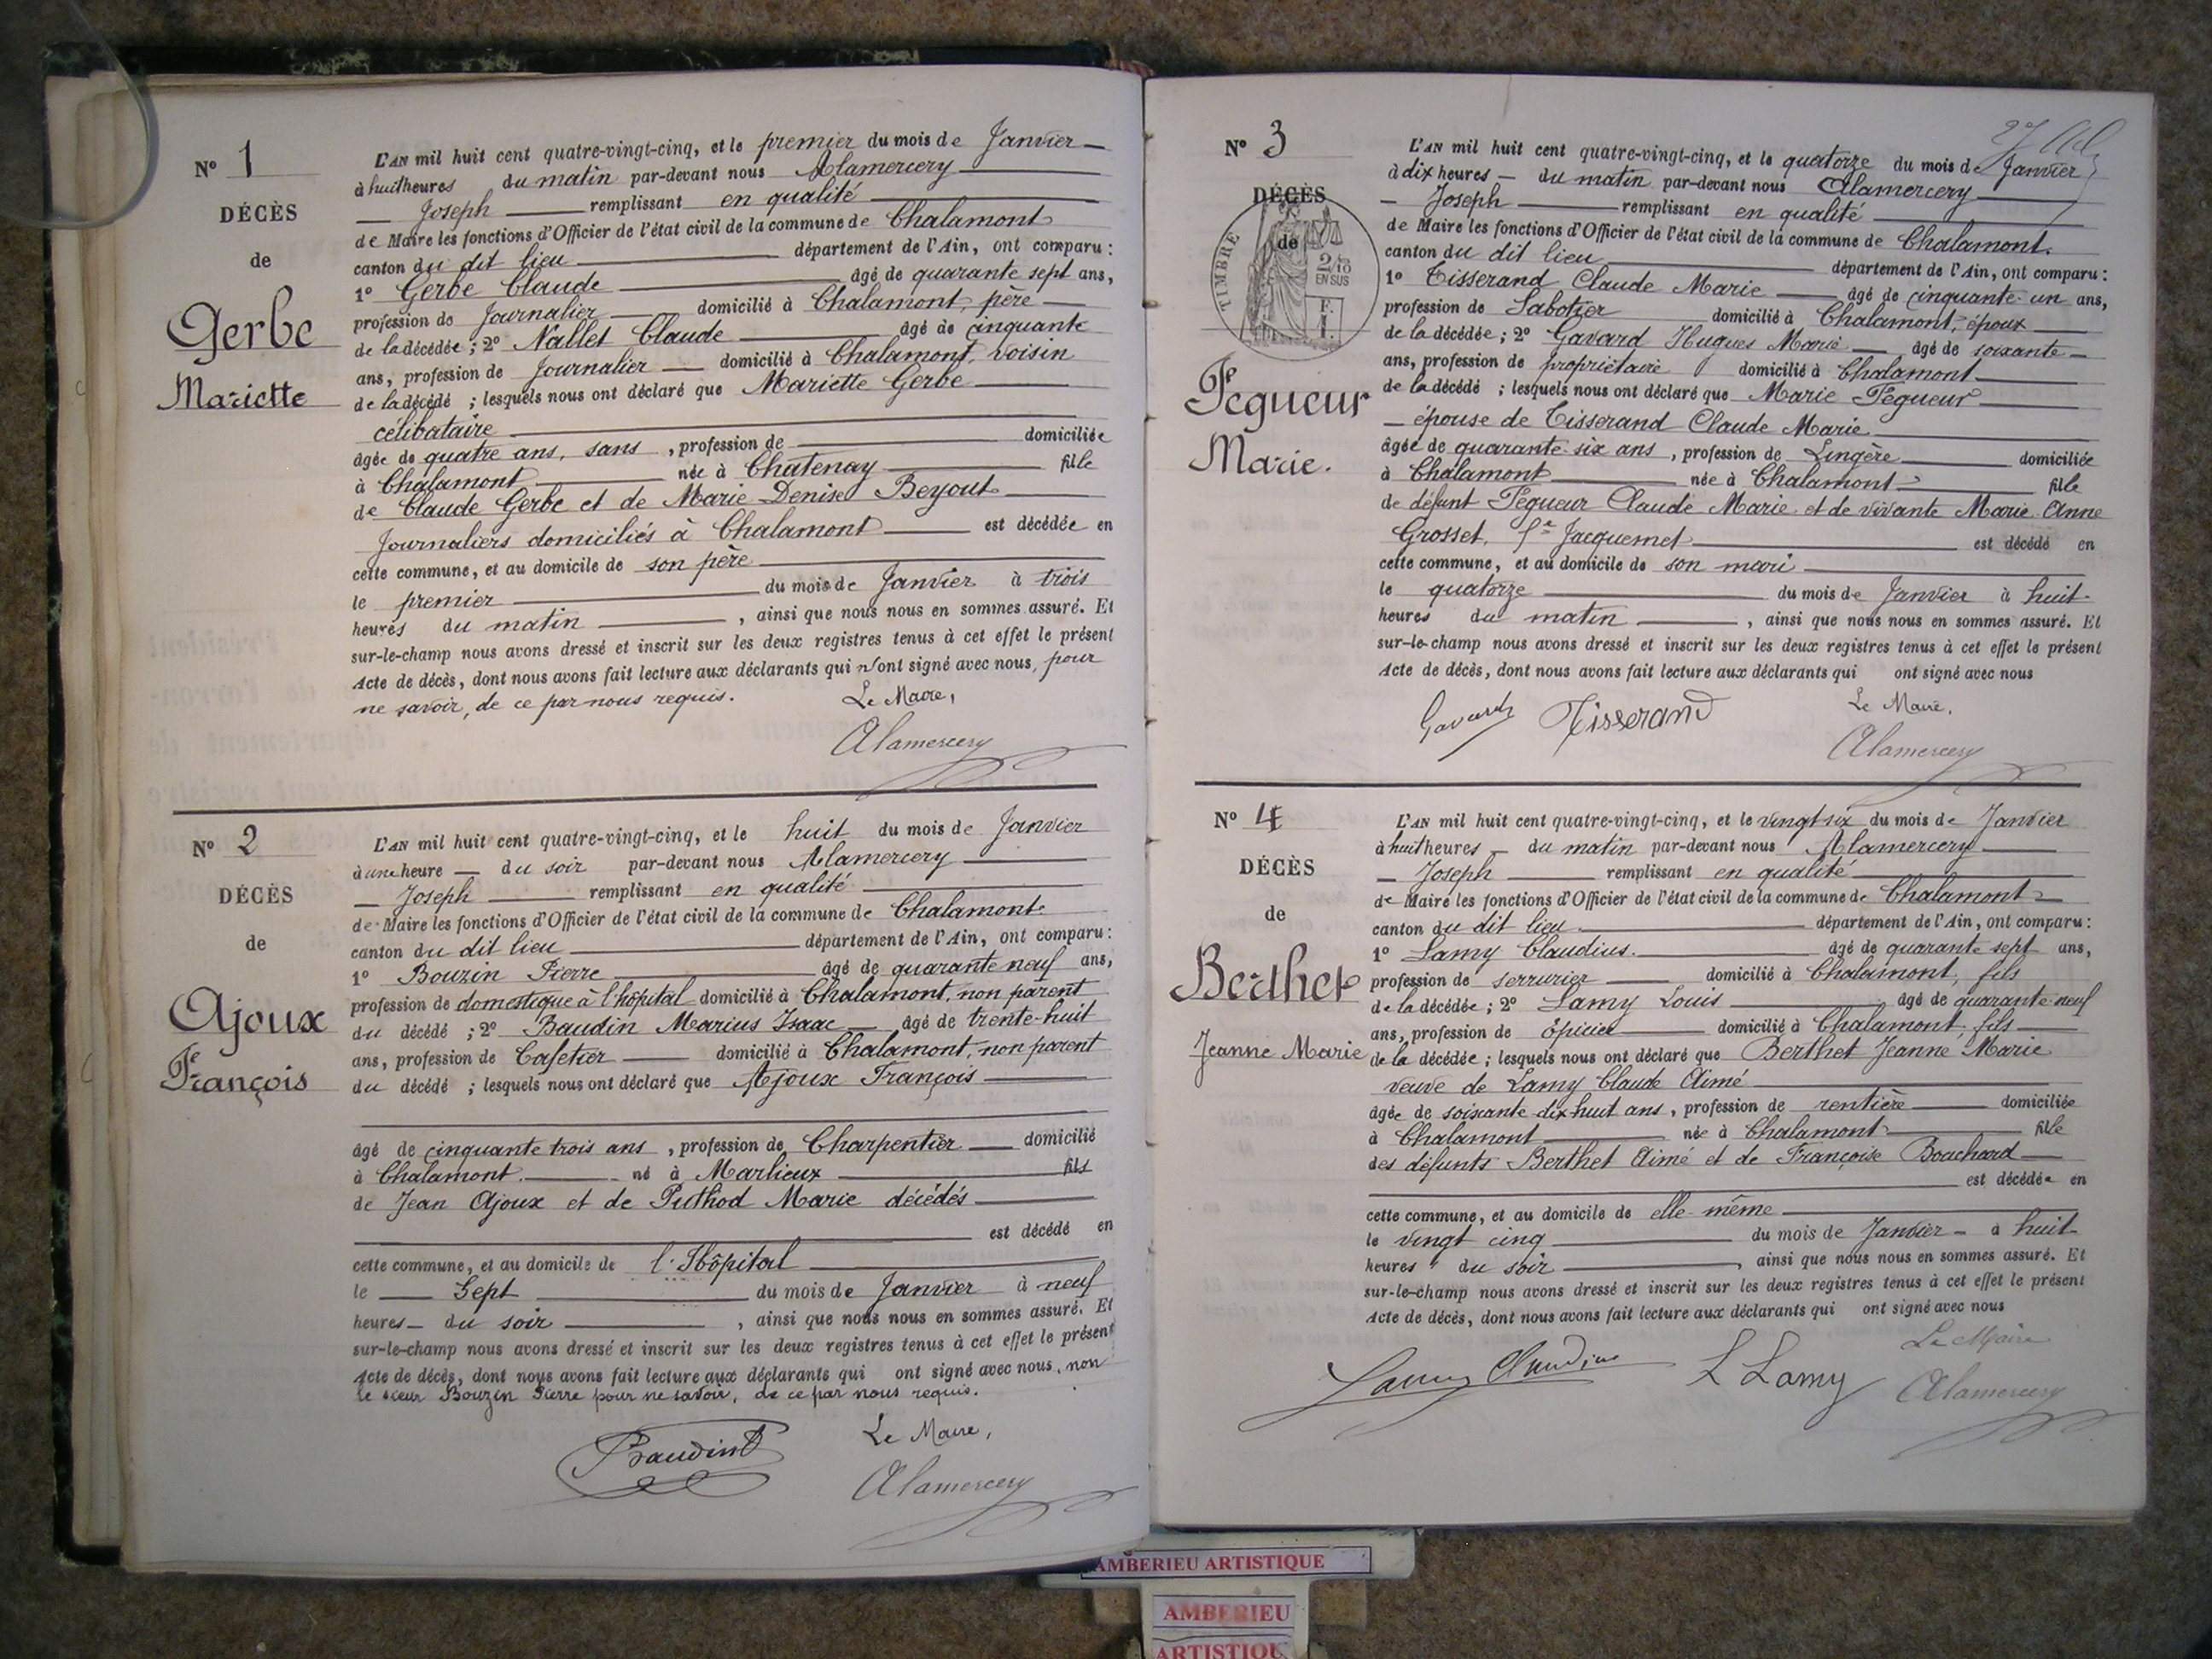 N° 1
DÉCÈS
de
Gerbe
Mariette
L'AN mil huit cent quatre-vingt-cinq, et le premier du mois de Janvier
à huit heures du matin par-devant nous Alamercery
Joseph remplissant en qualité
de Maire les fonctions d'Officier de l'état civil de la commune de Chalamont
canton du dit lieu département de l'Ain, ont comparu :
1° Gerbe Claude âgé de quarante sept ans,
profession de Journalier domicilié à Chalamont, père
de la décédée ; 2° Nallet Claude âgé de cinquante
ans, profession de Journalier domicilié à Chalamont, voisin
de la décédé ; lesquels nous ont déclaré que Mariette Gerbe
célibataire
âgée de quatre ans, sans , profession de domiciliée
à Chalamont née à Chatenay fille
de Claude Gerbe et de Marie Denise Beyout
Journaliers domiciliés à Chalamont est décédée en
cette commune, et au domicile de son père
le premier du mois de Janvier à trois
heures du matin , ainsi que nous nous en sommes assuré. Et
sur-le-champ nous avons dressé et inscrit sur les deux registres tenus à cet effet le présent
Acte de décès, dont nous avons fait lecture aux déclarants qui n'ont signé avec nous, pour
ne savoir, de ce par nous requis. Le Maire,
Alamercery
N° 2
DÉCÈS
de
Ajoux
François
L'AN mil huit cent quatre-vingt-cinq, et le huit du mois de Janvier
à une heure du soir par-devant nous Alamercery
Joseph remplissant en qualité
de Maire les fonctions d'Officier de l'état civil de la commune de Chalamont
canton du dit lieu département de l'Ain, ont comparu :
1° Bouzin Pierre âgé de quarante neuf ans,
profession de domestique à l'hôpital domicilié à Chalamont, non parent
du décédé ; 2° Baudin Marius Isaac âgé de trente-huit
ans, profession de Cafetier domicilié à Chalamont, non parent
du décédé ; lesquels nous ont déclaré que Ajoux François
âgé de cinquante trois ans , profession de Charpentier domicilié
à Chalamont. né à Marlieux fils
de Jean Ajoux et de Puthod Marie décédés
est décédé en
cette commune, et au domicile de l'Hôpital
le Sept du mois de Janvier à neuf
heures du soir , ainsi que nous nous en sommes assuré. Et
sur-le-champ nous avons dressé et inscrit sur les deux registres tenus à cet effet le présent
Acte de décès, dont nous avons fait lecture aux déclarants qui ont signé avec nous, non
le sieur Bouzin Pierre pour ne savoir, de ce par nous requis.
Baudin Le Maire,
Alamercery
N° 3
DÉCÈS
de
TIMBRE
2/10
EN SUS
F.
1.
Tegueur
Marie.
L'AN mil huit cent quatre-vingt-cinq, et le quatorze du mois de Janvier
à dix heures du matin par-devant nous Alamercery
Joseph remplissant en qualité
de Maire les fonctions d'Officier de l'état civil de la commune de Chalamont.
canton du dit lieu département de l'Ain, ont comparu :
1° Tisserand Claude Marie âgé de cinquante-un ans,
profession de Sabotier domicilié à Chalamont, époux
de la décédée ; 2° Gavard Hugues Marie âgé de soixante
ans, profession de propriétaire domicilié à Chalamont
de la décédé ; lesquels nous ont déclaré que Marie Tegueur
épouse de Tisserand Claude Marie
âgée de quarante-six ans , profession de Lingère domiciliée
à Chalamont née à Chalamont fille
de défunt Tegueur Claude Marie et de vivante Marie Anne
Grosset, fe Jacquemet est décédé en
cette commune, et au domicile de son mari
le quatorze du mois de Janvier à huit
heures du matin , ainsi que nous nous en sommes assuré. Et
sur-le-champ nous avons dressé et inscrit sur les deux registres tenus à cet effet le présent
Acte de décès, dont nous avons fait lecture aux déclarants qui ont signé avec nous
Gavard Tisserand Le Maire,
Alamercery
N° 4
DÉCÈS
de
Berthet
Jeanne Marie
L'AN mil huit cent quatre-vingt-cinq, et le vingt-six du mois de Janvier
à huit heures du matin par-devant nous Alamercery
Joseph remplissant en qualité
de Maire les fonctions d'Officier de l'état civil de la commune de Chalamont
canton du dit lieu département de l'Ain, ont comparu :
1° Lamy Claudius. âgé de quarante sept ans,
profession de serrurier domicilié à Chalamont, fils
de la décédée ; 2° Lamy Louis âgé de quarante-neuf
ans, profession de épicier domicilié à Chalamont, fils
de la décédée ; lesquels nous ont déclaré que Berthet Jeanne Marie
veuve de Lamy Claude Aimé
âgée de soixante-dix huit ans , profession de rentière domiciliée
à Chalamont née à Chalamont fille
des défunts Berthet Aimé et de Françoise Bouchard
est décédée en
cette commune, et au domicile de elle-même
le vingt cinq du mois de Janvier à huit
heures du soir , ainsi que nous nous en sommes assuré. Et
sur-le-champ nous avons dressé et inscrit sur les deux registres tenus à cet effet le présent
Acte de décès, dont nous avons fait lecture aux déclarants qui ont signé avec nous
Lamy Claudius L Lamy Le Maire
Alamercery
AMBERIEU ARTISTIQUE
AMBERIEU
ARTISTIQU